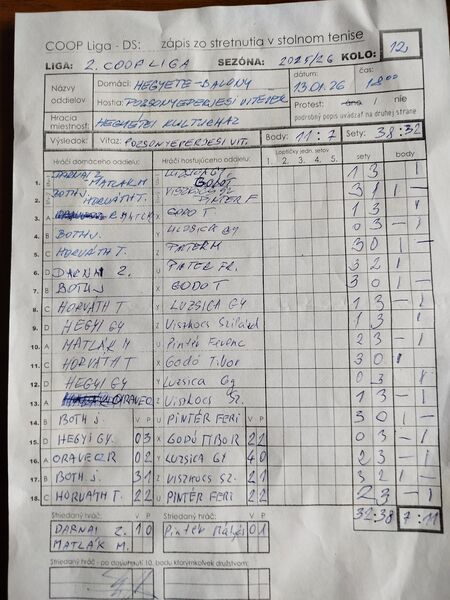 COOP Liga - DS: zápis zo stretnutia v stolnom tenise
LIGA: 2. COOP LIGA SEZÓNA: 2025/26 KOLO: 12
Názvy oddielov Domáci: HEGYETE-BALONY dátum: 13.01.26 čas: 18:00
Hostia: POZSONYEPERJESI VITEPER Protest: áno / nie
podrobný popis uvádzať na druhej strane
Hracia miestnosť: HEGYÉTEI KULTÚRHÁZ
Výsledok Víťaz: POZSONYEPERJESI VIT. Body: 11:7 Sety: 38:32
Hráči domáceho oddielu: Hráči hosťujúceho oddielu: Loptičky jedn. setov sety body
1. 2. 3. 4. 5.
1. DARNAI Z. MATLÁK M GODÓ T 1 3 1
2. BOTH J. HORVÁTH T. PINTER F 3 1 1 -
3. A MATLÁK X GODO T 1 3 1
4. B BOTH J. Y LUZSICA GY 0 3 - 1
5. C HORVÁTH T. Z PINTER M 3 0 1 -
6. D DARNAI Z. U PINTER FR. 3 2 1
7. B BOTH J X GODO T 3 0 1 -
8. C HORVÁTH T Y LUZSICA GY 1 3 - 1
9. D HEGYI GY Z Viszkocs Szilárd 1 3 1
10. A MATLÁK M U Pintér Ferenc 2 3 - 1
11. C HORVÁTH T X Godó Tibor 3 0 1
12. D HEGYI GY Y Luzsica Gy 0 3
13. A ORAVEC Z Viszkocs Sz. 1 3 - 1
14. B BOTH J. V P U PINTÉR FERI V P 3 0 1 -
15. D HEGYI GY. 0 3 X GODÓ TIBOR 2 2 0 3 - 1
16. A ORAVEC R 0 2 Y LUZSICA GY 4 0 2 3 - 1
17. B BOTH J. 3 1 Z VISZKOCS SZ. 2 1 3 2 1 -
18. C HORVÁTH T. 2 2 U PINTÉR FERI 2 2 2 3 - 1
Striedaný hráč: V P Striedaný hráč: V P 32:38 7:11
DARNAI Z. 1 0 Pintér Mátyás 0 1
MATLÁK M.
Striedaný hráč - po dosiahnutí 10. bodu ktorýmkoľvek družstvom: